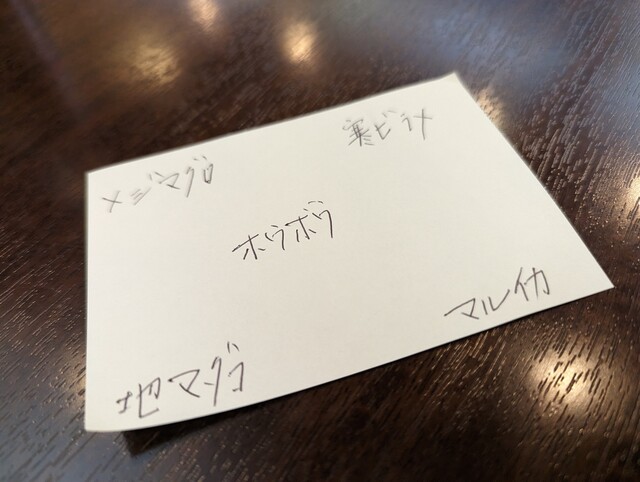 メジマグロ
寒ビラメ
ホウボウ
マルイカ
地マダコ